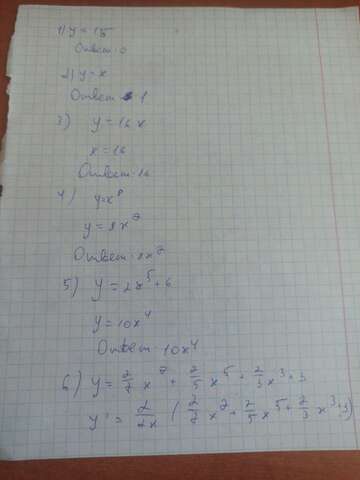 1) y = 15
Ответ: 0
2) y = x
Ответ 1
3) y = 16x
x = 16
Ответ: 16
4) y = x⁸
y = 8x⁷
Ответ: 8x⁷
5) y = 2x⁵ + 6
y = 10x⁴
Ответ 10x⁴
6) y = 2/7 x⁷ + 2/5 x⁵ + 2/3 x³ + 3
y' = d/dx ( 2/7 x⁷ + 2/5 x⁵ + 2/3 x³ + 3 )